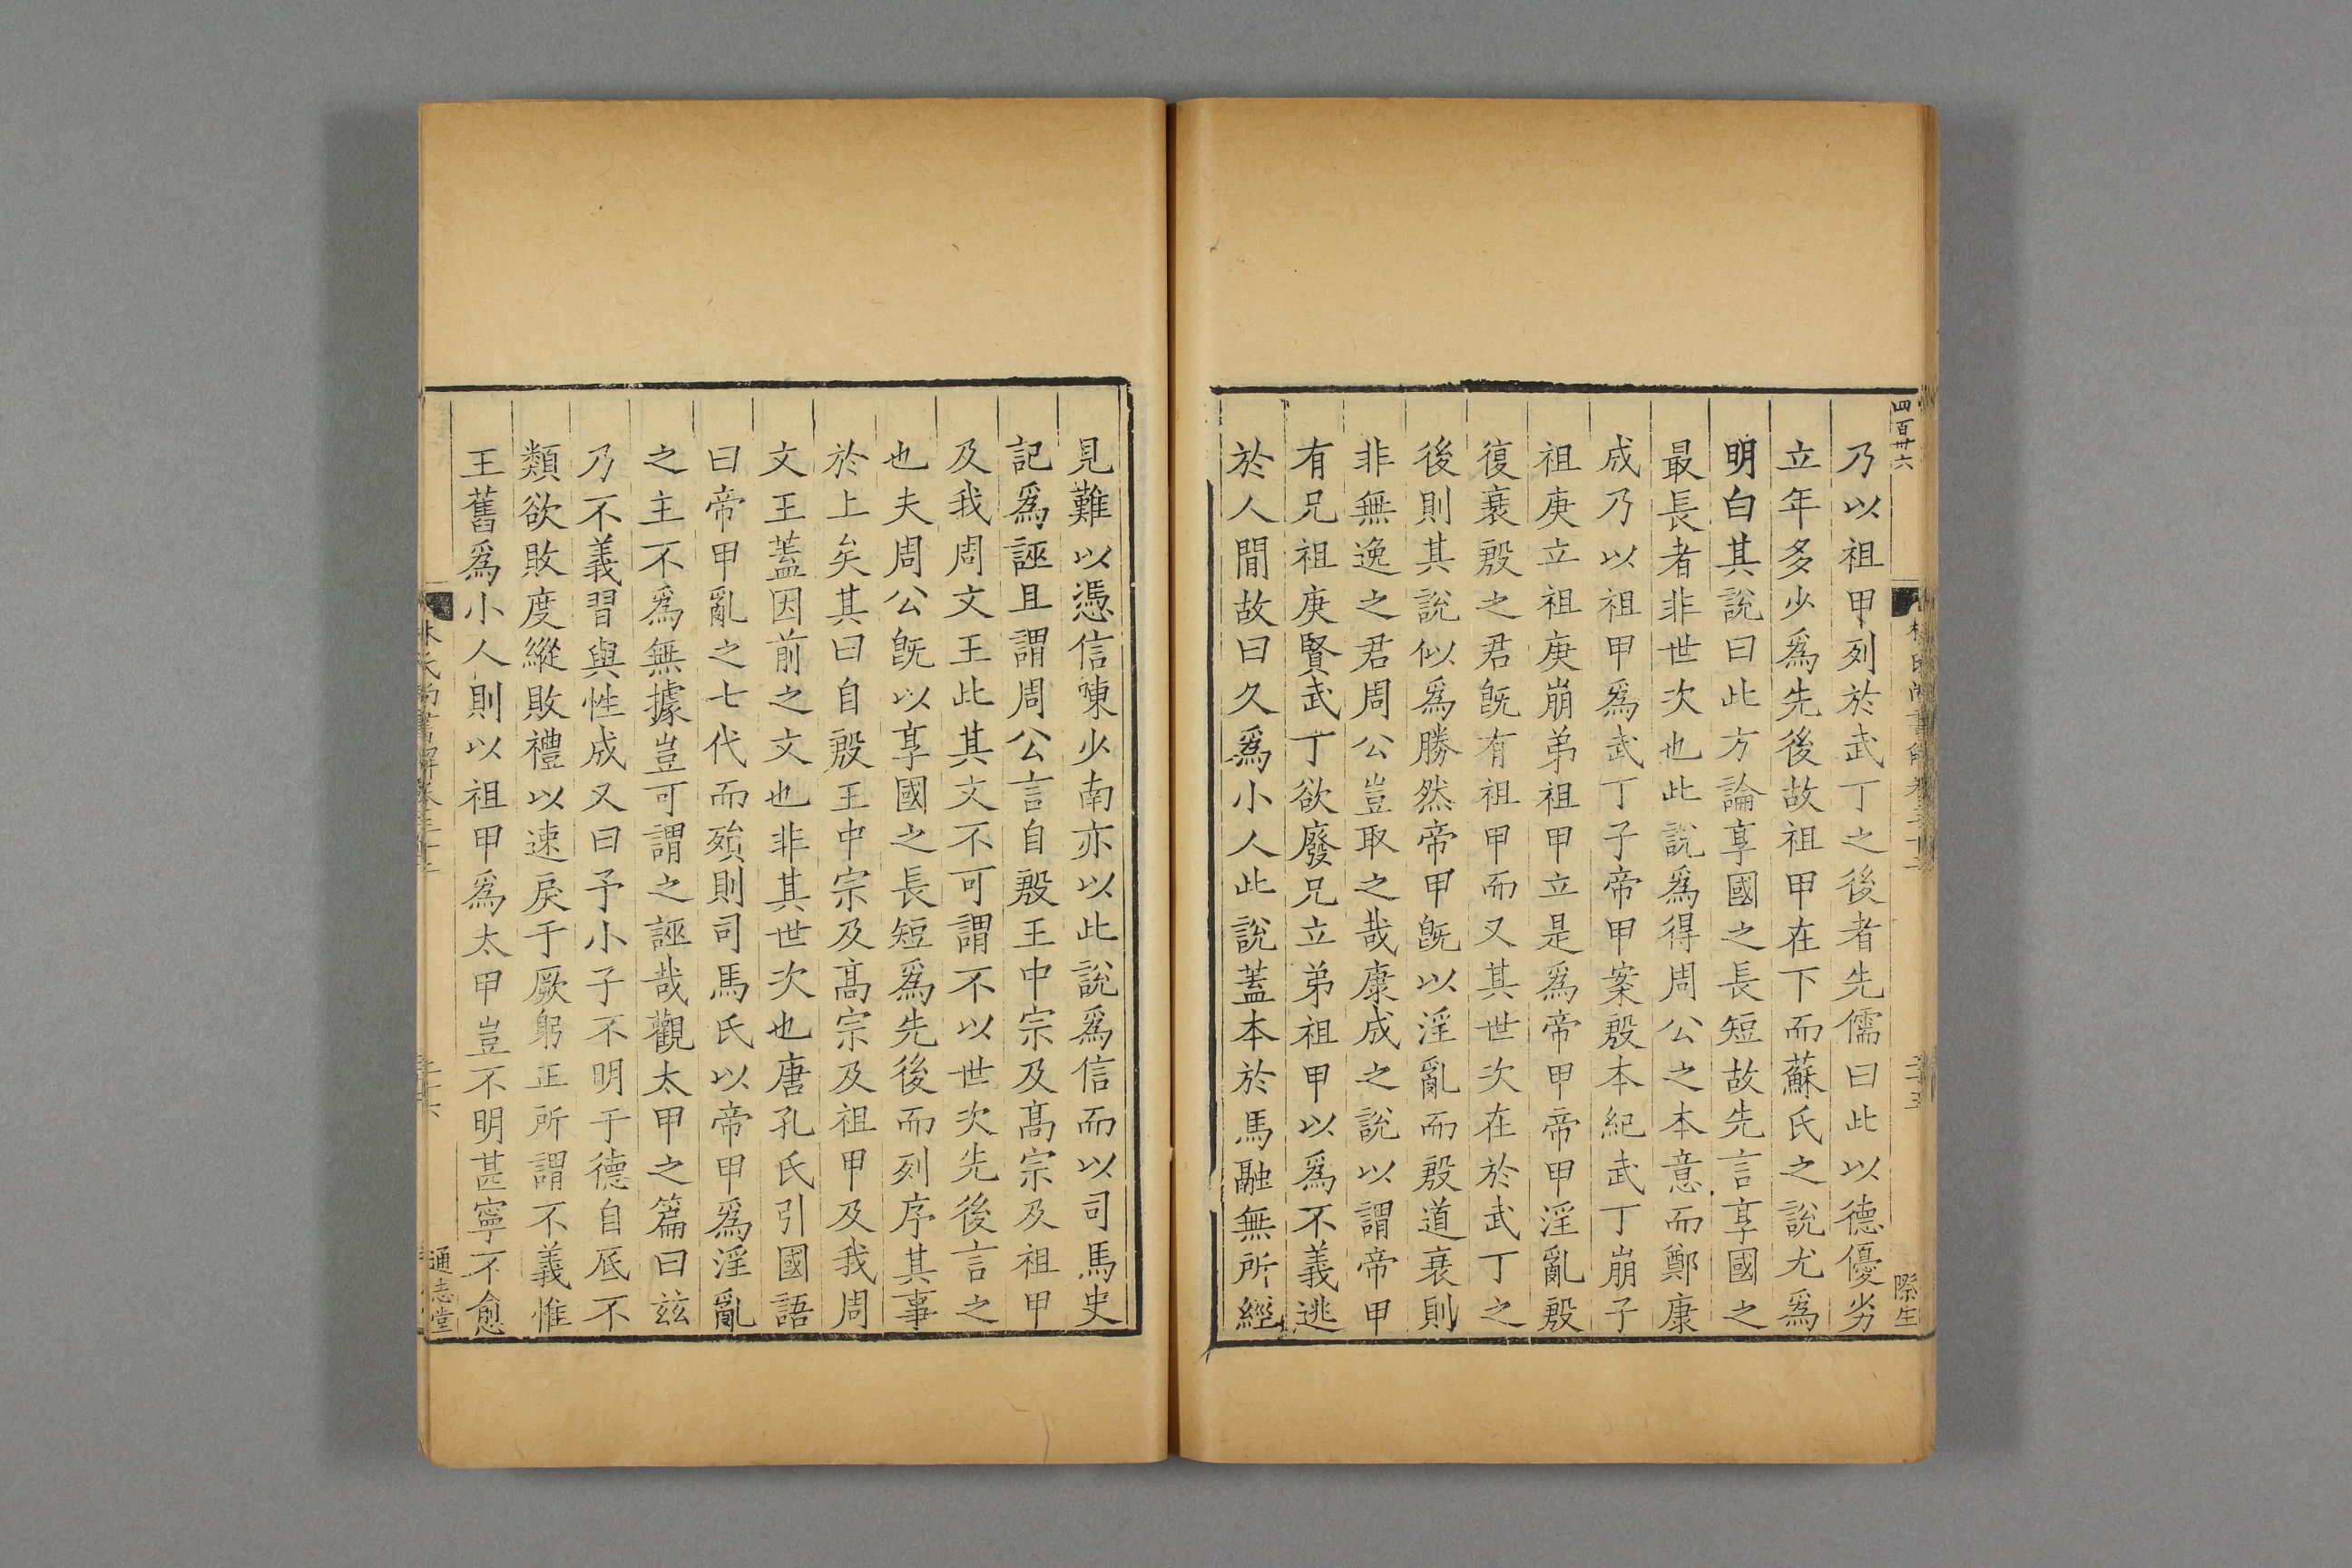 四百卅六
乃以祖甲列於武丁之後者先儒曰此以德優劣
立年多少爲先後故祖甲在下而蘇氏之說尤爲
明白其說曰此方論享國之長短故先言享國之
最長者非世次也此說爲得周公之本意而鄭康
成乃以祖甲爲武丁子帝甲案殷本紀武丁崩子
祖庚立祖庚崩弟祖甲立是爲帝甲帝甲淫亂殷
復衰殷之君旣有祖甲而又其世次在於武丁之
後則其說似爲勝然帝甲旣以淫亂而殷道衰則
非無逸之君周公豈取之哉康成之說以謂帝甲
有兄祖庚賢武丁欲廢兄立弟祖甲以爲不義逃
於人閒故曰久爲小人此說蓋本於馬融無所經
見難以憑信陳少南亦以此說爲信而以司馬史
記爲誣且謂周公言自殷王中宗及髙宗及祖甲
及我周文王此其文不可謂不以世次先後言之
也夫周公旣以享國之長短爲先後而列序其事
於上矣其曰自殷王中宗及髙宗及祖甲及我周
文王蓋因前之文也非其世次也唐孔氏引國語
曰帝甲亂之七代而殞則司馬氏以帝甲爲淫亂
之主不爲無據豈可謂之誣哉觀太甲之篇曰兹
乃不義習與性成又曰予小子不明于德自底不
類欲敗度縱敗禮以速戾于厥躬正所謂不義惟
王舊爲小人則以祖甲爲太甲豈不明甚寧不愈
林氏尚書解卷三十二
通志堂